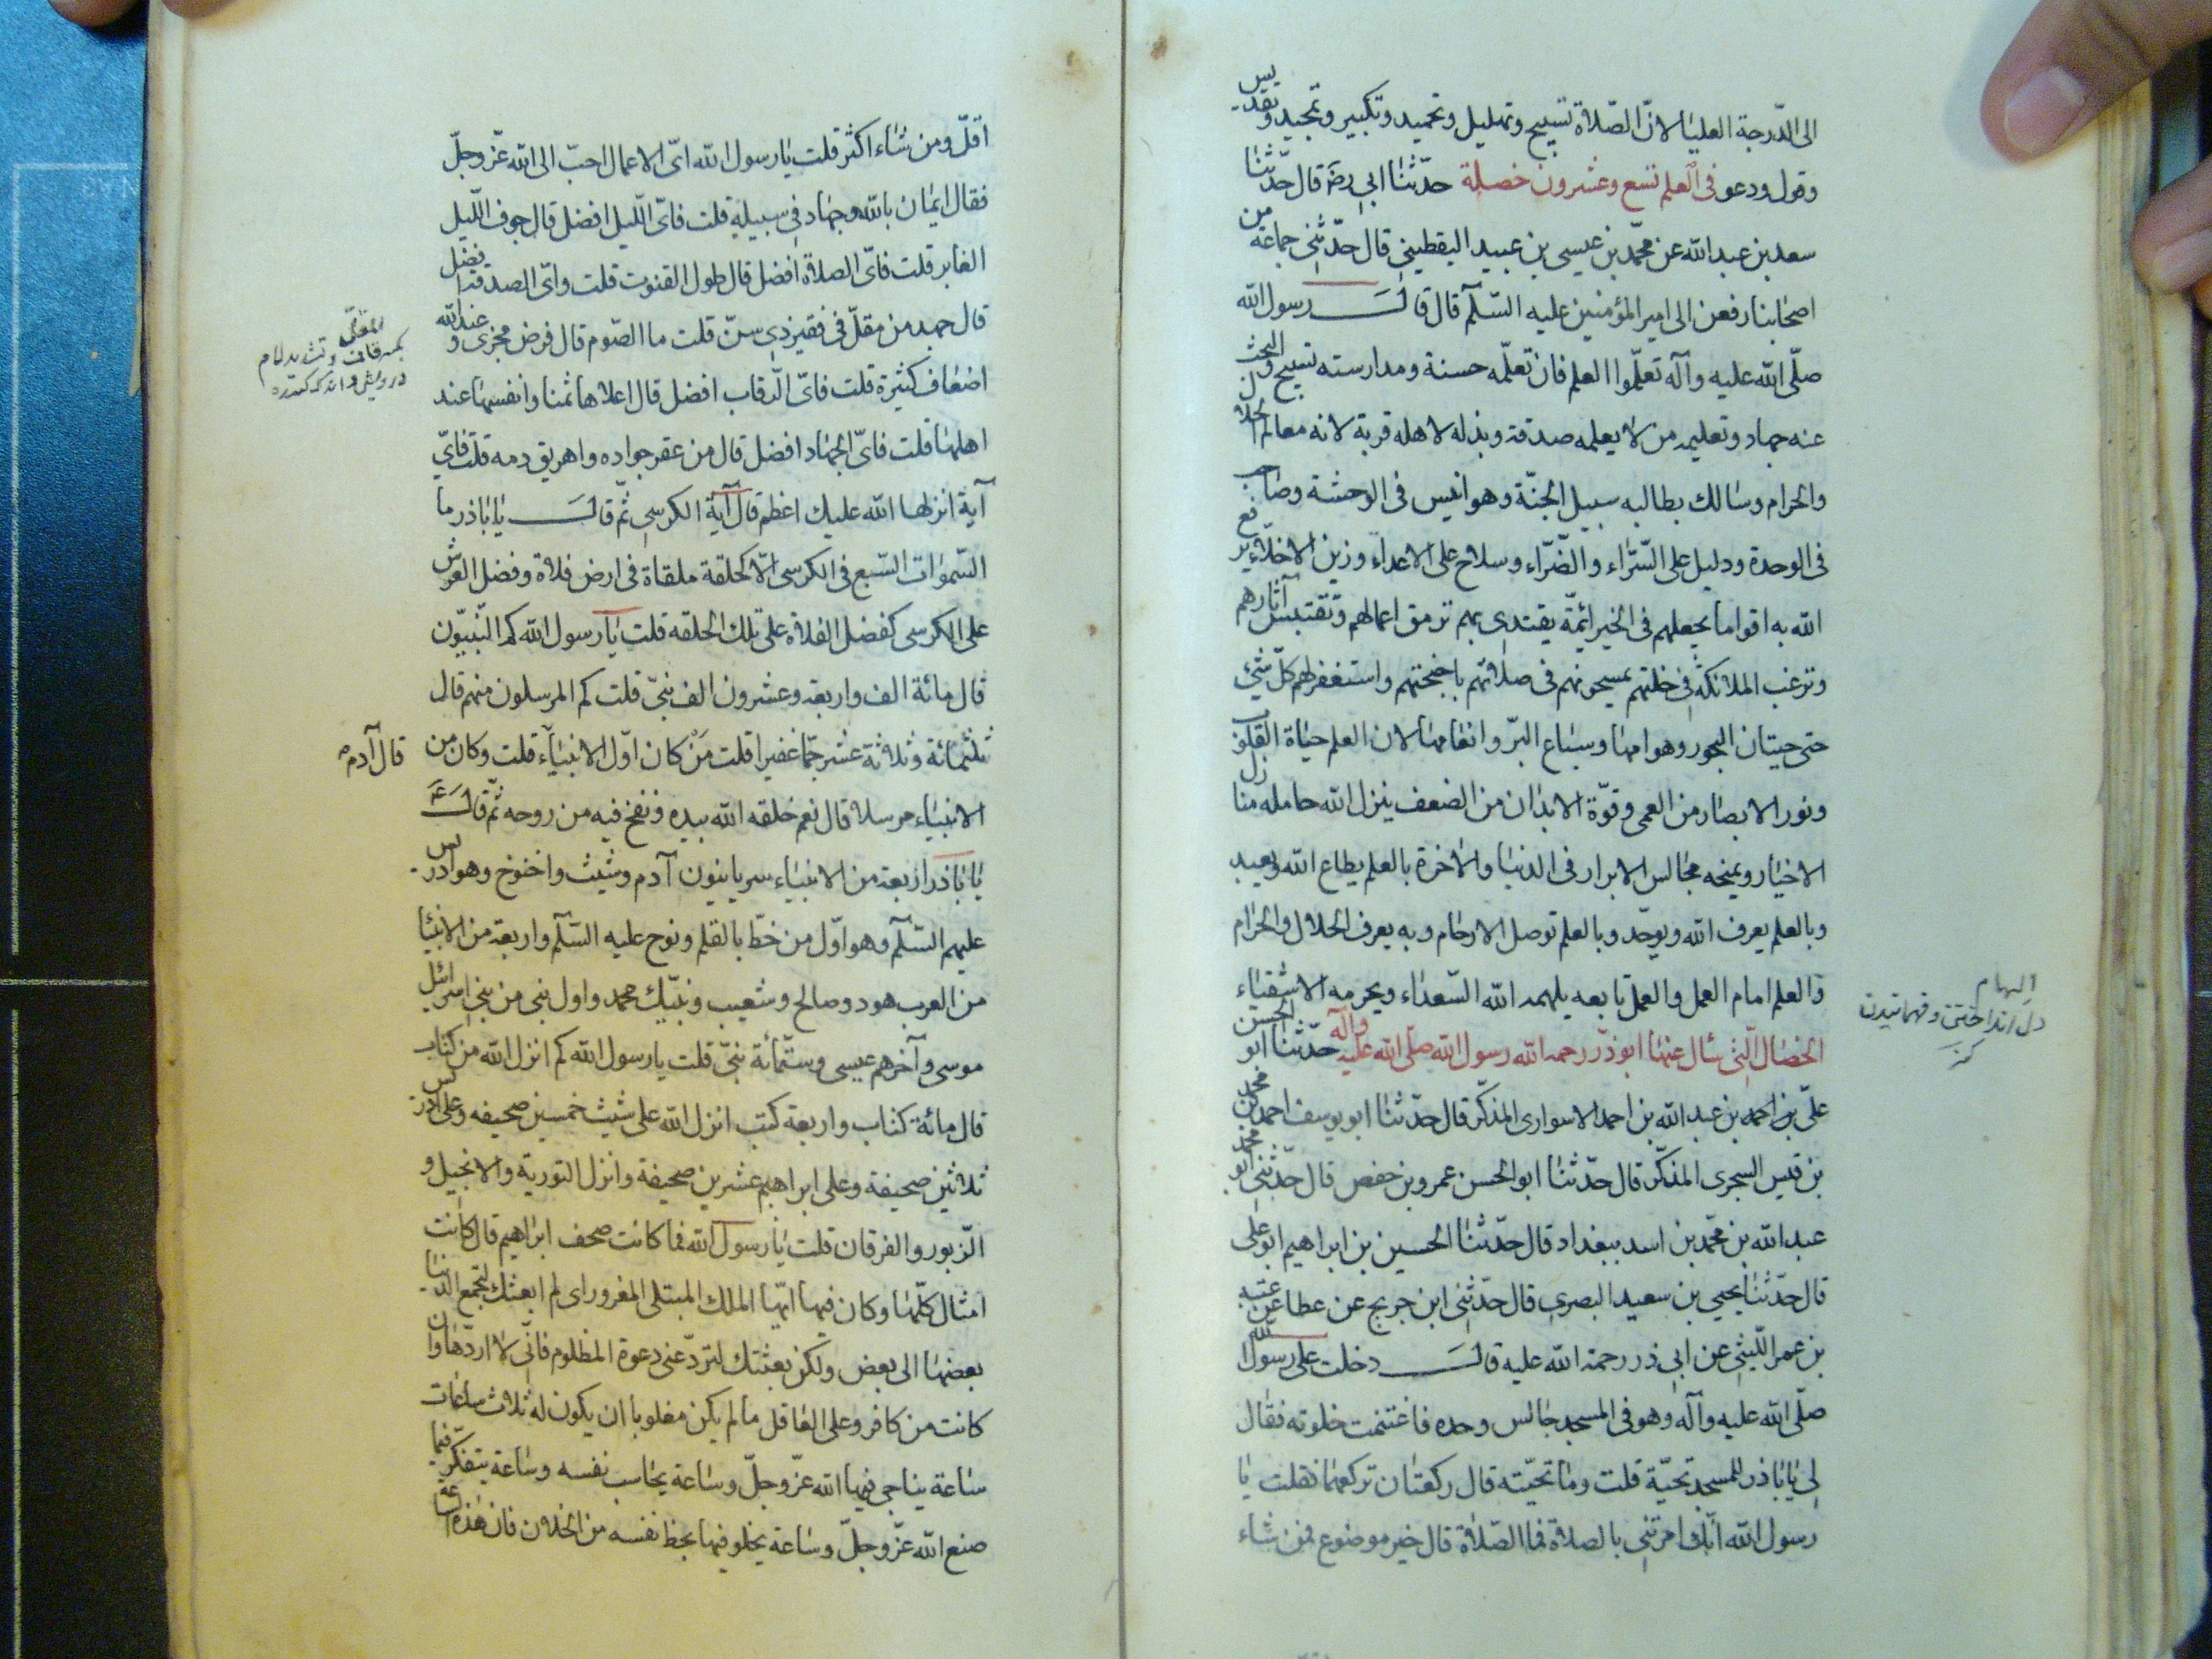 الى الدّرجة العليا لانّ الصّلاة تسبيح وتهليل وتحميد وتكبير وتمجيد وتقديس
وقول ودعو فى العلم تسع وعشرون خصلة حدّثنا ابي رضه قال حدّثنا
سعد بن عبد الله عن محمّد بن عيسى بن عبيد اليقطينى قال حدّثنى جماعة من
اصحابنا رفعن الى امير المؤمنين عليه السّلم قال قال رسول الله
صلّى الله عليه وآله تعلّموا العلم فان تعلّمه حسنة ومدارسته تسبيح والبحث
عنه جهاد وتعليمه من لا يعلمه صدقة وبذله لاهله قربة لانه معالم الحلال
والحرام وسالك بطالبه سبيل الجنّة وهو انيس فى الوحشة وصاحب
فى الوحدة ودليل على السّرّاء والضّرّاء وسلاح على الاعداء وزين الاخلّاء يرفع
الله به اقواما يجعلهم فى الخير ائمّة يقتدى بهم ترمق اعمالهم وتقتبس آثارهم
وترغب الملائكة فى خلتهم يمسحونهم فى صلاتهم باجنحتهم واستغفر لهم كلّ شئ
حتى حيتان البحور وهوامها وسباع البرّ وانعامها لان العلم حياة القلوب
ونور الابصار من العمى وقوّة الابدان من الضعف ينزل الله حامله منازل
الاخيار ويمنحه مجالس الابرار فى الدنيا والاخرة بالعلم يطاع الله ويعبد
وبالعلم يعرف الله ويوحّد وبالعلم توصل الارحام وبه يعرف الحلال والحرام
والعلم امام العمل والعمل تابعه يلهمه الله السّعداء ويحرمه الاشقياء
الهام
دل انداختن و فهمانيدن
الخصال الّتى سال عنها ابو ذرّ رحمه الله رسول الله صلى الله عليه وآله حدّثنا ابو الحسن
علىّ بن احمد بن عبد الله بن احمد الاسوارى المذكّر قال حدّثنا ابو يوسف احمد بن محمد
بن قيس السجرى المذكّر قال حدّثنا ابو الحسن عمرو بن حفص قال حدّثنى ابو محمد
عبد الله بن محمّد بن اسد ببغداد قال حدّثنا الحسين بن ابراهيم ابو على
قال حدّثنا يحيى بن سعيد البصرى قال حدّثنى ابن جريج عن عطا عن عتبه
بن عمر اللّيثى عن ابى ذر رحمة الله عليه قال دخلت على رسول الله
صلّى الله عليه وآله وهو فى المسجد جالس وحده فاغتنمت خلوته فقال
لى يا باذر للمسجد تحيّة قلت وما تحيّته قال ركعتان تركعهما فقلت يا
رسول الله انّك امرتنى بالصلاة فما الصّلاة قال خير موضوع فمن شاء
اقلّ ومن شاء اكثر قلت يا رسول الله اىّ الاعمال احبّ الى الله عزّ وجلّ
فقال ايمان بالله وجهاد فى سبيله قلت فاىّ اللّيل افضل قال جوف اللّيل
الغابر قلت فاىّ الصلاة افضل قال طول القنوت قلت واىّ الصدقة افضل
قال جهد من مقلّ فى فقير ذى سنّ قلت ما الصّوم قال فرض مجزى وعند الله
المقلّ
بكسر قاف وتشديد لام
اضعاف كثيرة قلت فاىّ الرّقاب افضل قال اعلاها ثمنا وانفسها عند
اهلها قلت فاىّ الجهاد افضل قال من عقر جواده واهريق دمه قلت فاىّ
آية انزلها الله عليك اعظم قال آية الكرسى ثمّ قال يا اباذر ما
السّموات السّبع فى الكرسى الّا كحلقة ملقاة فى ارض فلاة وفضل العرش
على الكرسى كفضل الفلاة على تلك الحلقه قلت يا رسول الله كم النّبيّون
قال مائة الف واربعة وعشرون الف نبىّ قلت كم المرسلون منهم قال
ثلثمائة وثلاثة عشر جمّا غفيرا قلت مَن كان اوّل الانبياء قلت وكان من
قال آدم
الانبياء مرسلا قال نعم خلقه الله بيده ونفخ فيه من روحه ثمّ قال ع
يا باذر اربعة من الانبياء سريانيون آدم وشيث واخنوخ وهو ادريس
عليهم السّلم وهو اوّل من خطّ بالقلم ونوح عليه السّلم واربعة من الانبيا
من العرب هود وصالح وشعيب ونبيّك محمد واول نبى من بنى اسرائل
موسى وآخرهم عيسى وستّمائة نبىّ قلت يا رسول الله كم انزل الله من كتاب
قال مائة كتاب واربعة كتب انزل الله على شيث خمسين صحيفه وعلى ادريس
ثلاثين صحيفة وعلى ابراهيم عشرين صحيفة وانزل التورية والانجيل و
الزّبور والفرقان قلت يا رسول الله فما كانت صحف ابراهيم قال كانت
امثال كلّها وكان فيها ايّها الملك المبتلى المغرور اى لم ابعثك لتجمع الدّنيا
بعضها الى بعض ولكن بعثتك لتردّ عنى دعوة المظلوم فانّى لا اردّها وان
كانت من كافر وعلى العاقل ما لم يكن مغلوبا ان يكون له ثلاث ساعات
ساعة يناجى فيها الله عزّ وجلّ وساعة يحاسب نفسه وساعة يتفكّر فيما
صنع الله عزّ وجلّ وساعة يخلو فيها بحظ نفسه من الحلال فان هذه الساعة